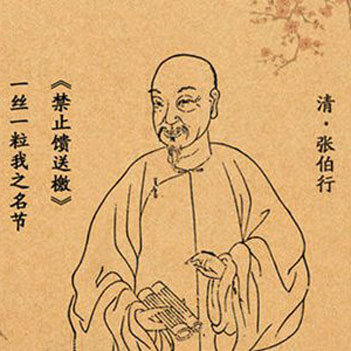 清·张伯行
《禁止馈送檄》
一丝一粒我之名节